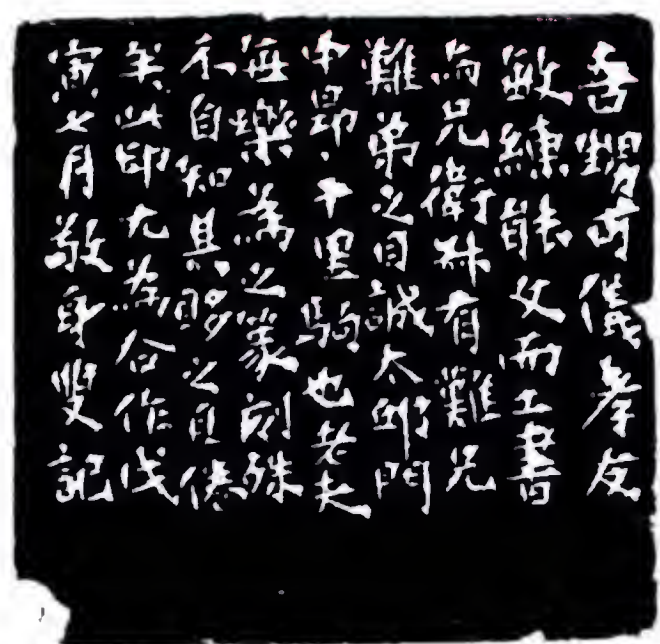 吾甥可儀孝友
敏練能文而工書
兄衛叔有難兄
難弟之目誠太邱門
中昂昂千里駒也老夫
每樂為之篆刻殊
不自知其眵之且倦
矣此印尤為合作戊
寅七月敬身叟記